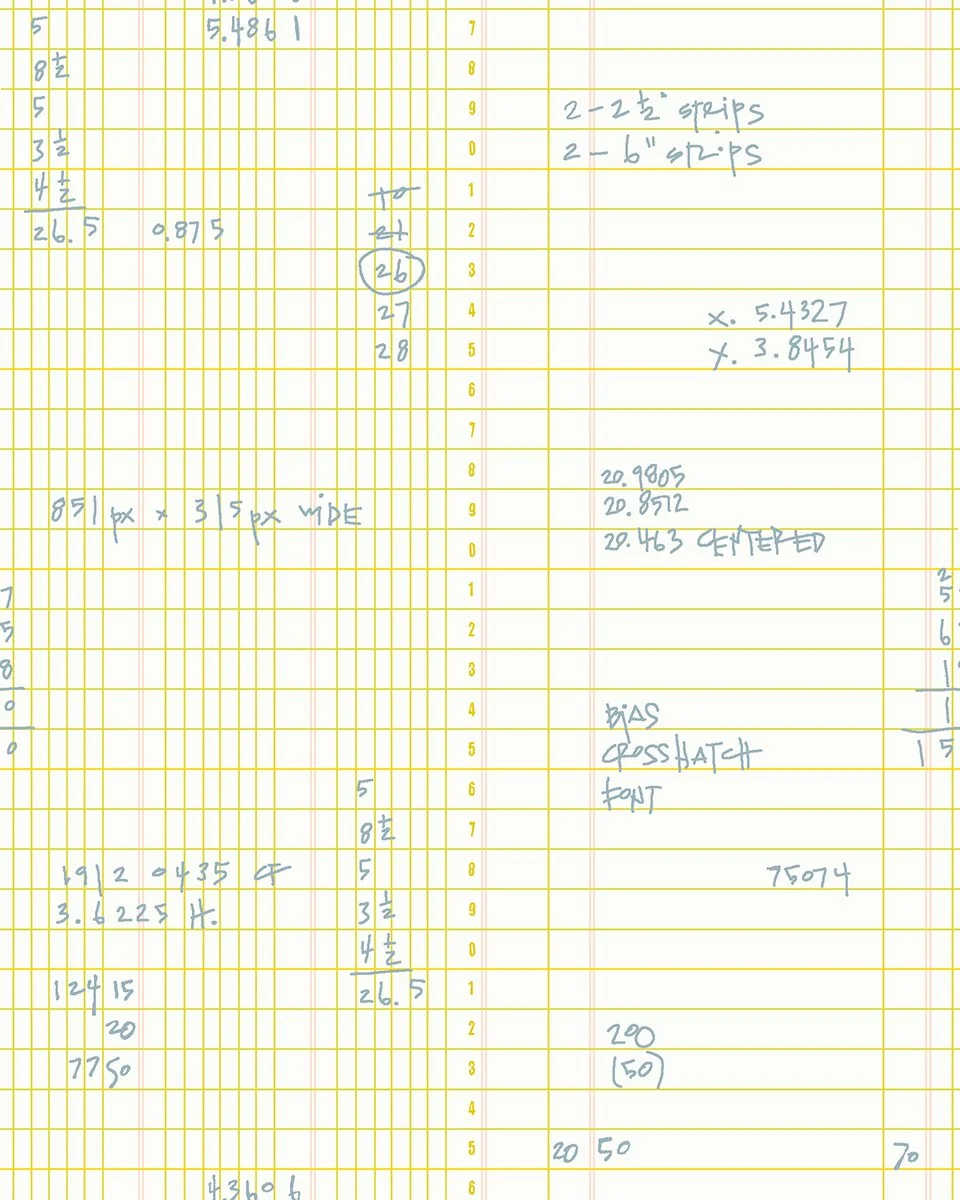 5 5.4861 7
8 ½ 8
5 9 2 - 2 ½" strips
3 ½ 0 2 - 6" strips
4 ½ 10 1
26.5 0.875 21 2
26 3
27 4 x. 5.4327
28 5 y. 3.8454
6
7
8 20.9805
851 px x 315 px WIDE 9 20.8512
0 20.463 CENTERED
7 1 2
5
5 2 6
8 3 1
0 4 BIAS 1
0 5 CROSSHATCH 15
5 6 FONT
8 ½ 7
1912 0435 5 8 75074
3.6225 H. 3 ½ 9
4 ½ 0
12415 26.5 1
20 2 200
7750 3 (50)
4
5 20 50 70
4.3606 6